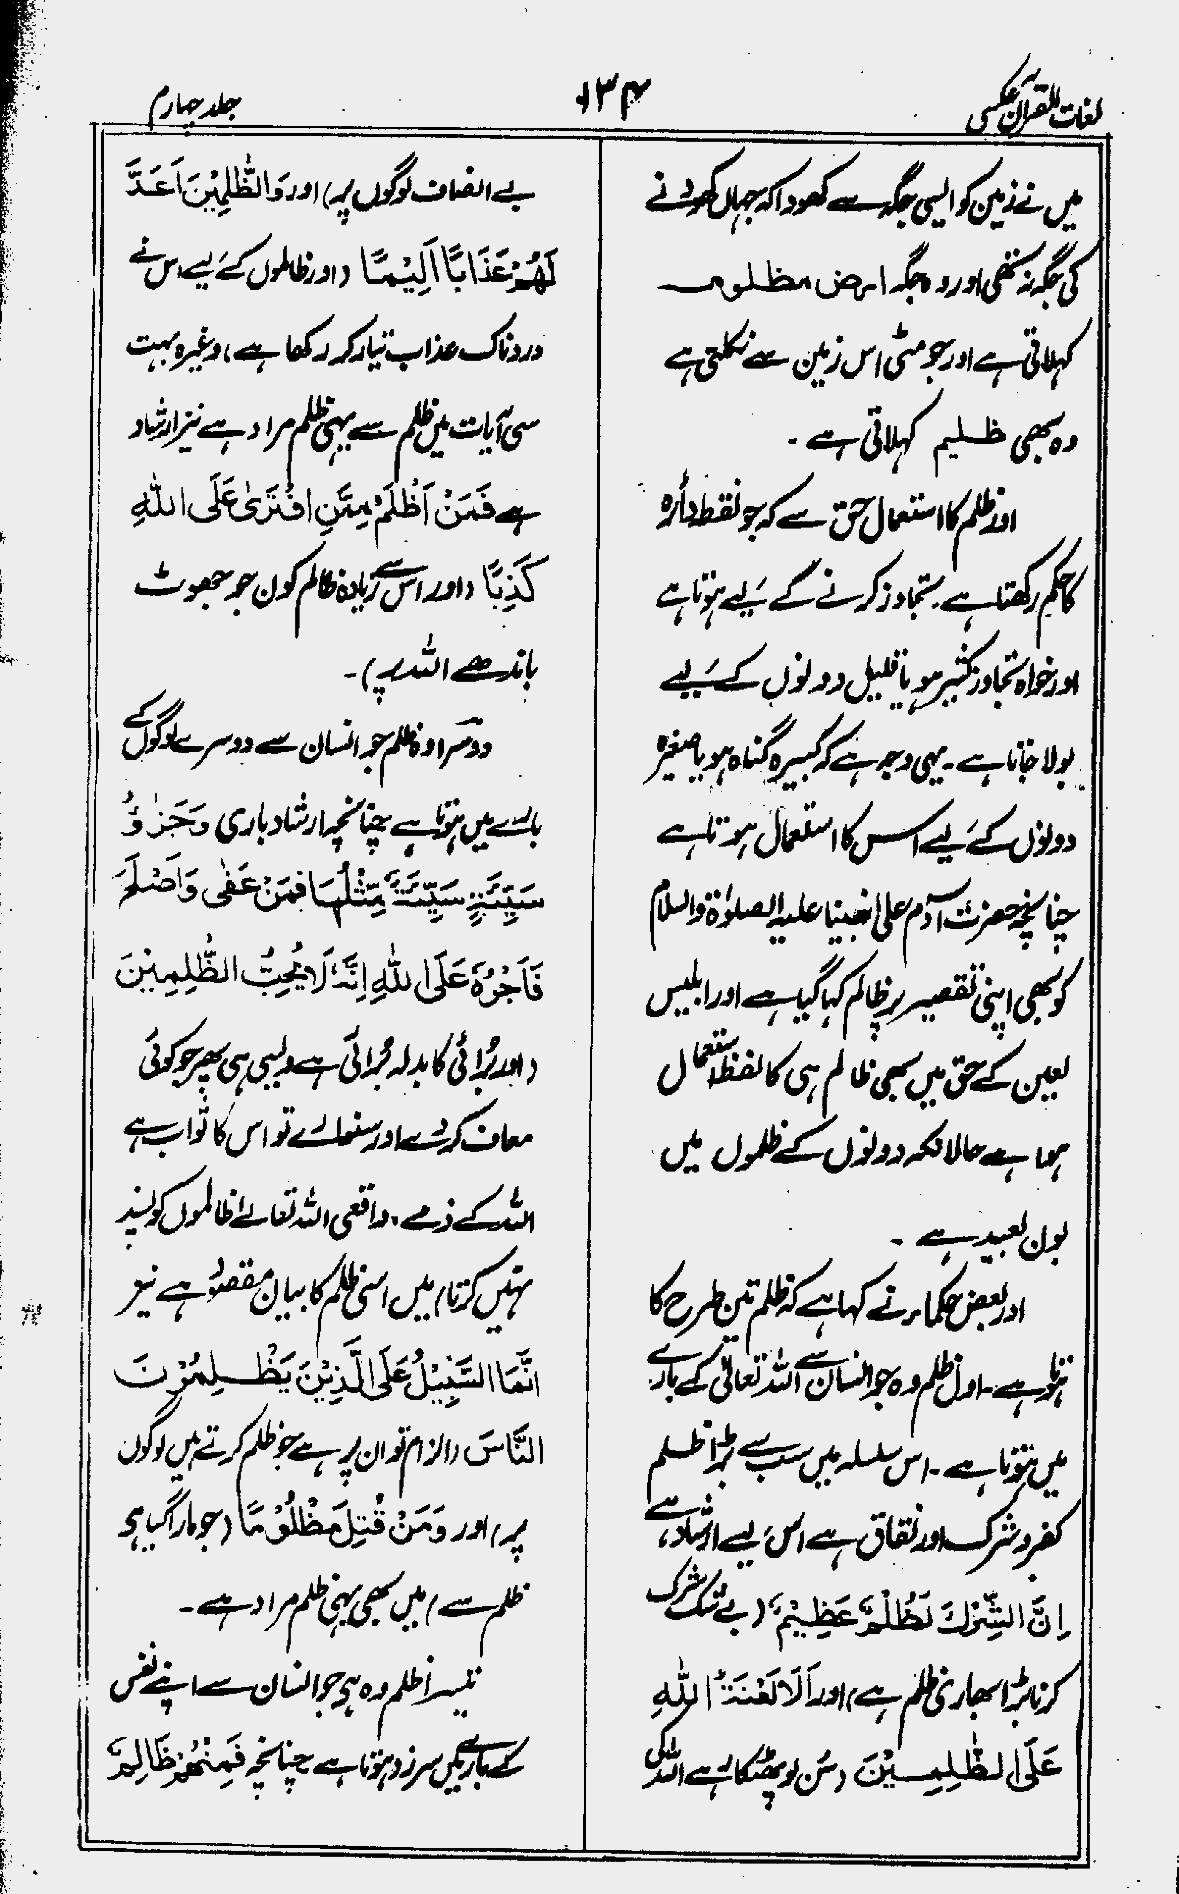 لغات القرآن عکسی
۱۳۴
جلد چہارم
میں نے زمین کو ایسی جگہ سے کھودا کہ جہاں کھودنے
کی جگہ نہ تھی اور وہ جگہ ارض مظلومہ
کہلاتی ہے اور جو مٹی اس زمین سے نکلتی ہے
وہ بھی ظلیم کہلاتی ہے ۔
اور ظلم کا استعمال حق سے کہ جو نقطۂ دائرہ
کا حکم رکھتا ہے، تجاوز کرنے کے لیے ہوتا ہے
اور خواہ تجاوز کثیر ہو یا قلیل دونوں کے لیے
بولا جاتا ہے ۔ یہی وجہ ہے کہ کبیرہ گناہ ہو یا صغیرہ
دونوں کے لیے اس کا استعمال ہوتا ہے
چنانچہ حضرت آدم علیٰ نبینا علیہ الصلوٰۃ والسلام
کو بھی اپنی تقصیر پر ظالم کہا گیا ہے اور ابلیس
لعین کے حق میں بھی ظالم ہی کا لفظ استعمال
ہوا ہے حالانکہ دونوں کے ظلموں میں
بون بعید ہے ۔
اور بعض حکماء نے کہا ہے کہ ظلم تین طرح کا
ہوتا ہے ۔ اول ظلم وہ جو انسان سے اللہ تعالیٰ کے بارے
میں ہوتا ہے ۔ اس سلسلہ میں سب سے بڑا ظلم
کفر و شرک اور نفاق ہے اس لیے ارشاد ہے،
اِنَّ الشِّرْكَ لَظُلْمٌ عَظِیْمٌ (بے شک شرک
کرنا بڑا بھاری ظلم ہے) اور اَلَا لَعْنَۃُ اللّٰہِ
عَلَی الظّٰلِمِیْنَ (سن لو پھٹکار ہے اللہ کی
بے انصاف لوگوں پر) اور وَالظّٰلِمِیْنَ اَعَدَّ
لَھُمْ عَذَابًا اَلِیْمًا (اور ظالموں کے لیے اس نے
دردناک عذاب تیار کر رکھا ہے) وغیرہ بہت
سی آیات میں ظلم سے یہی ظلم مراد ہے نیز ارشاد
ہے فَمَنْ اَظْلَمُ مِمَّنِ افْتَرٰی عَلَی اللّٰہِ
کَذِبًا (اور اس سے زیادہ ظالم کون جو جھوٹ
باندھے اللہ پر) ۔
دوسرا وہ ظلم جو انسان سے دوسرے لوگوں کے
بارے میں ہوتا ہے چنانچہ ارشاد باری وَجَزٰٓؤُ
سَیِّئَۃٍ سَیِّئَۃٌ مِّثْلُھَا فَمَنْ عَفٰی وَاَصْلَحَ
فَاَجْرُہٗ عَلَی اللّٰہِ اِنَّہٗ لَا یُحِبُّ الظّٰلِمِیْنَ
(اور بُرائی کا بدلہ بُرائی ہے ویسی ہی پھر جو کوئی
معاف کر دے اور سنوارے تو اس کا ثواب ہے
اللہ کے ذمے، واقعی اللہ تعالےٰ ظالموں کو پسند
نہیں کرتا) میں اسی ظلم کا بیان مقصود ہے نیز
اِنَّمَا السَّبِیْلُ عَلَی الَّذِیْنَ یَظْلِمُوْنَ
النَّاسَ (الزام تو ان پر ہے جو ظلم کرتے ہیں لوگوں
پر) اور وَمَنْ قُتِلَ مَظْلُوْمًا (جو مارا گیا ہو
ظلم سے) میں بھی یہی ظلم مراد ہے ۔
تیسرا ظلم وہ ہے جو انسان سے اپنے نفس
کے بارے میں سرزد ہوتا ہے چنانچہ فَمِنْھُمْ ظَالِمٌ